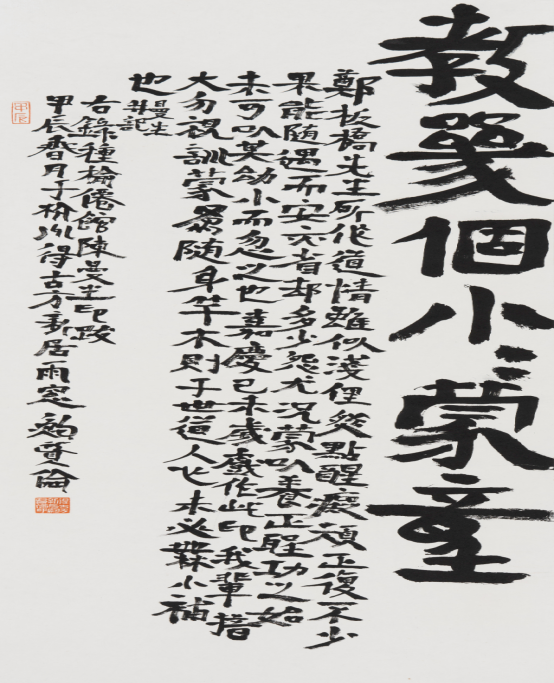 教幾個小〻蒙童
鄭板橋先生所作道情雖似淺俚然點醒癡頑正復不少
果能随遇而安亦省却多少怨尤況蒙以養正聖功之始
未可以其幼小而忽之也嘉慶己未歲戲作此印我輩措
大勿視訓蒙爲随身竿木則于世道人心未必無小補
也
曼生
并記
右錄種榆僊館陳曼生印跋
甲辰春月于杭州得古方新居雨窗鮑賢倫
甲辰